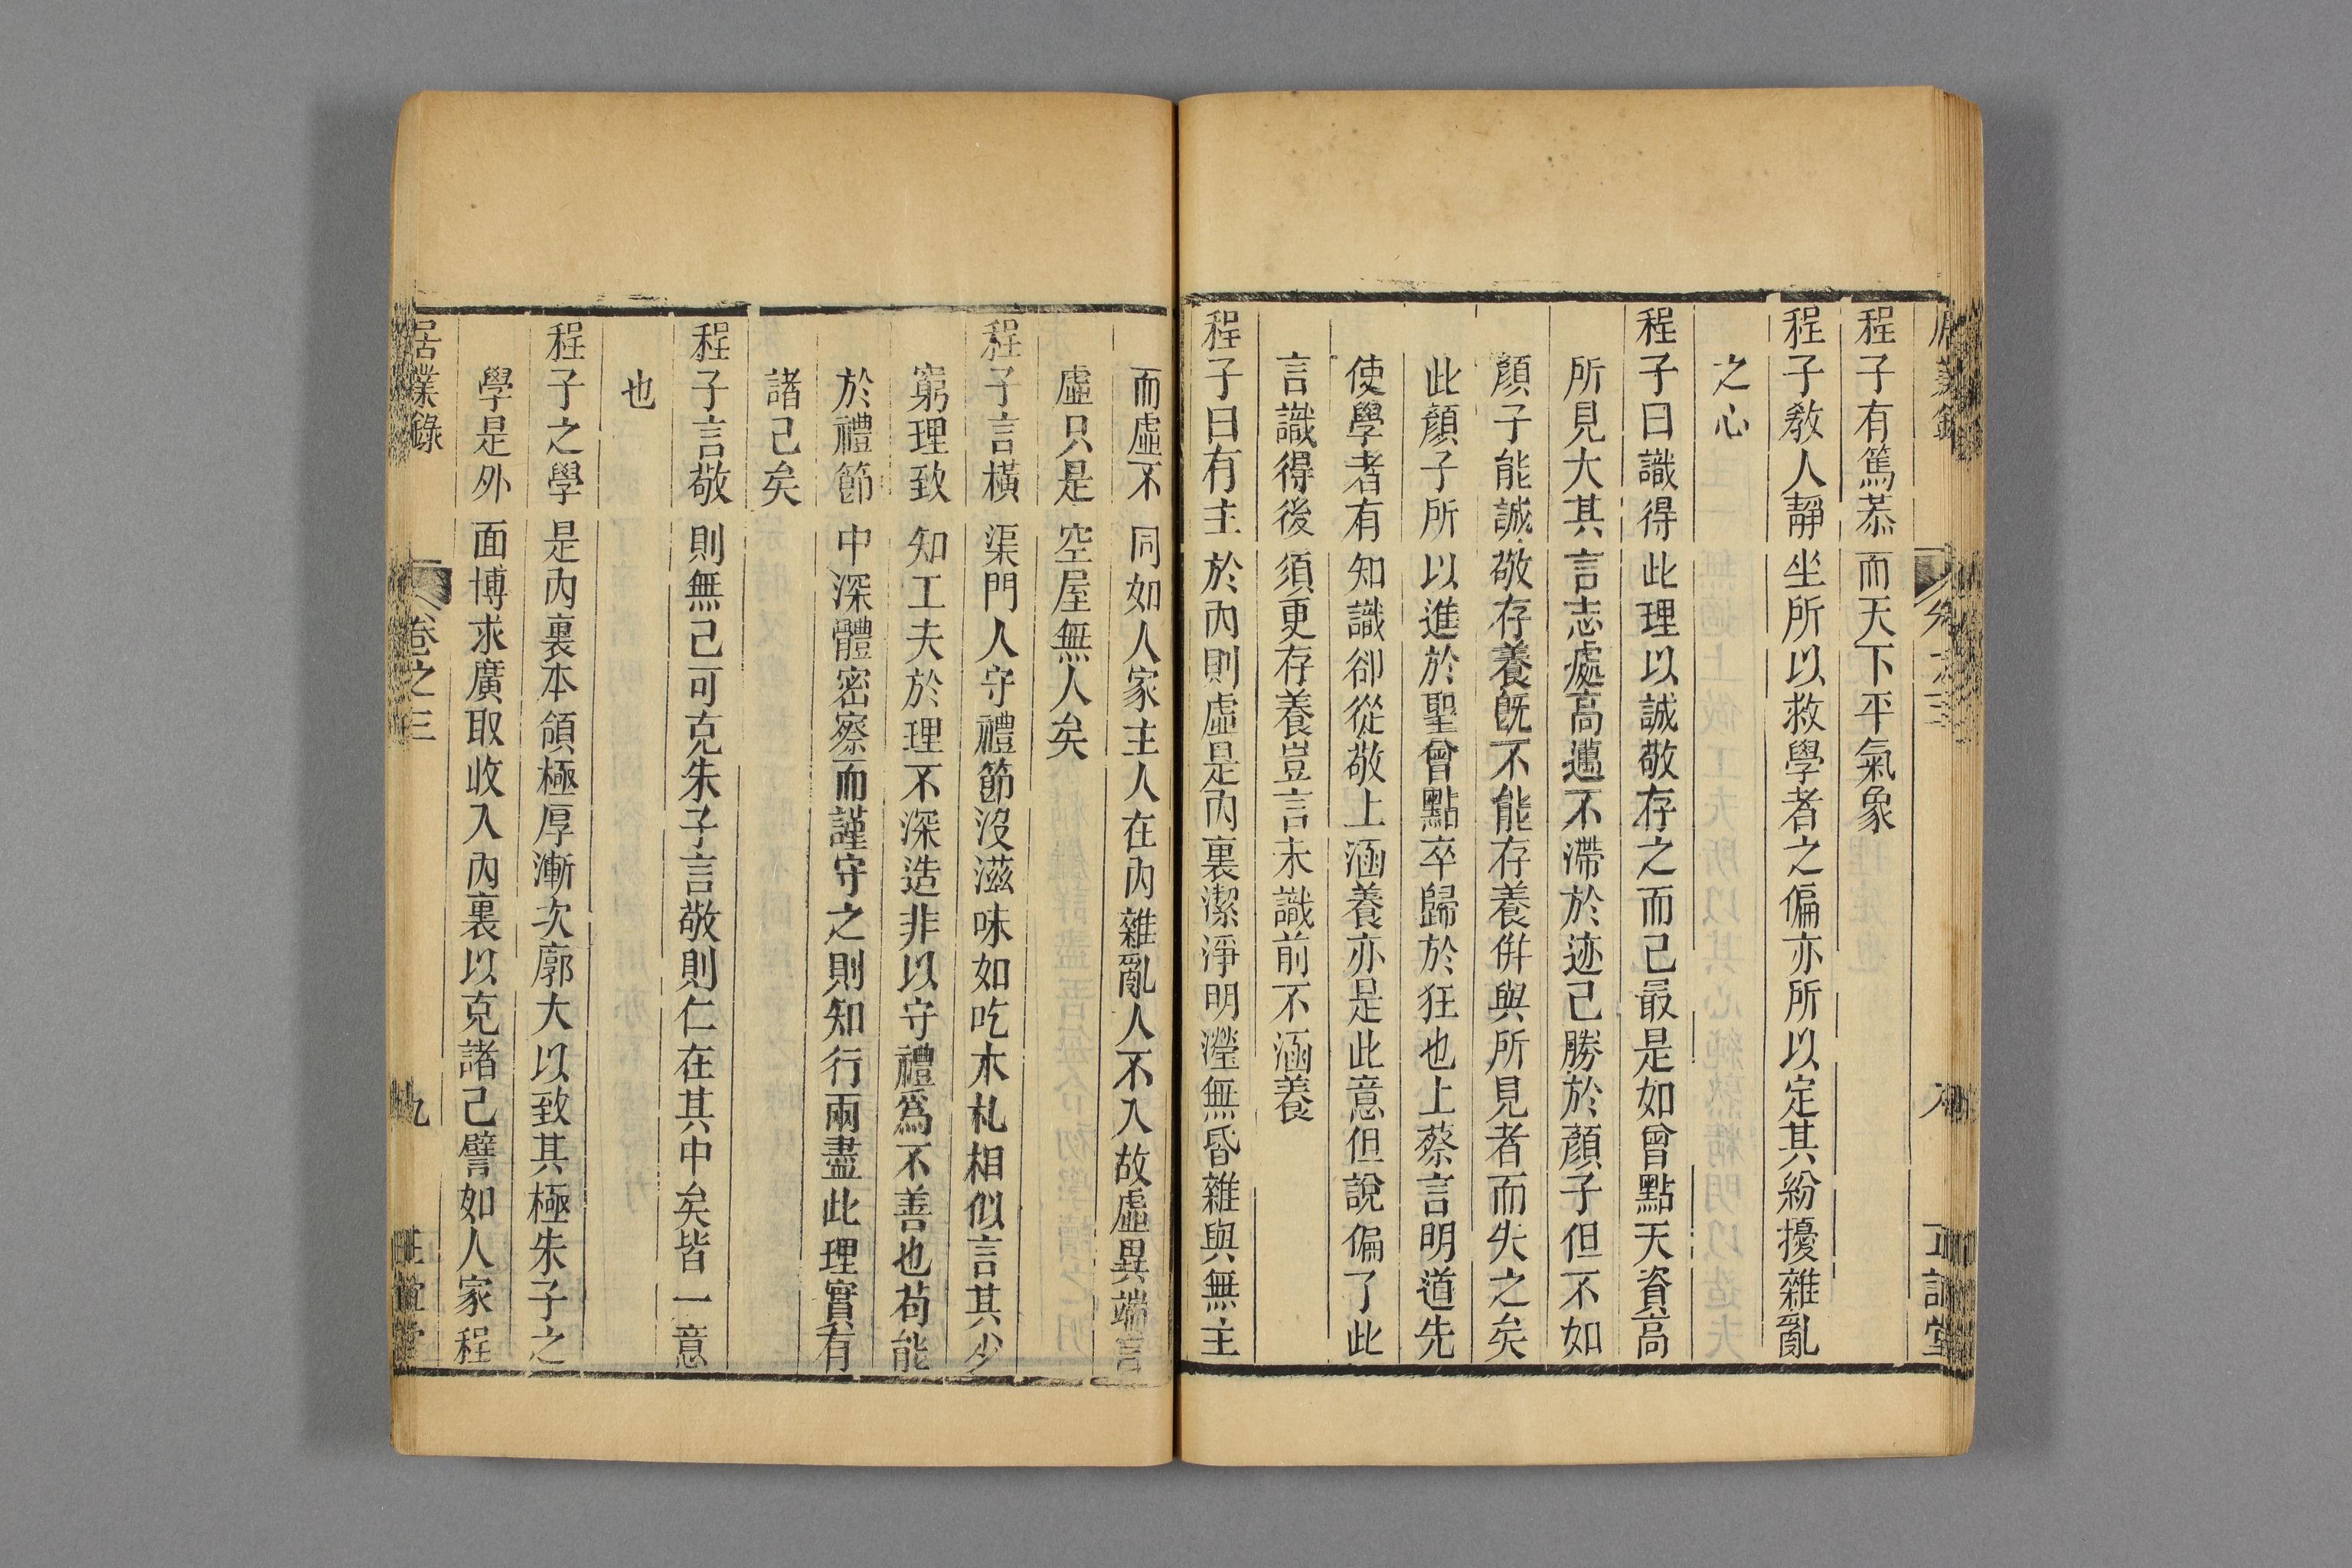 程子有篤恭而天下平氣象
程子教人靜坐所以救學者之偏亦所以定其紛擾雜亂
之心
程子曰識得此理以誠敬存之而已最是如曾點天資高
所見大其言志處高邁不滯於迹已勝於顏子但不如
顏子能誠敬存養既不能存養併與所見者而失之矣
此顏子所以進於聖曾點卒歸於狂也上蔡言明道先
使學者有知識卻從敬上涵養亦是此意但說偏了此
言識得後須更存養豈言未識前不涵養
程子曰有主於內則虛是內裏潔淨明瀅無昏雜與無主
而虛不同如人家主人在內雜亂人不入故虛異端言
虛只是空屋無人矣
程子言橫渠門人守禮節沒滋味如吃木札相似言其少
窮理致知工夫於理不深造非以守禮爲不善也苟能
於禮節中深體密察而謹守之則知行兩盡此理實有
諸己矣
程子言敬則無己可克朱子言敬則仁在其中矣皆一意
也
程子之學是內裏本領極厚漸次廓大以致其極朱子之
學是外面博求廣取收入內裏以克諸己譬如人家程
居業錄 卷之三 九